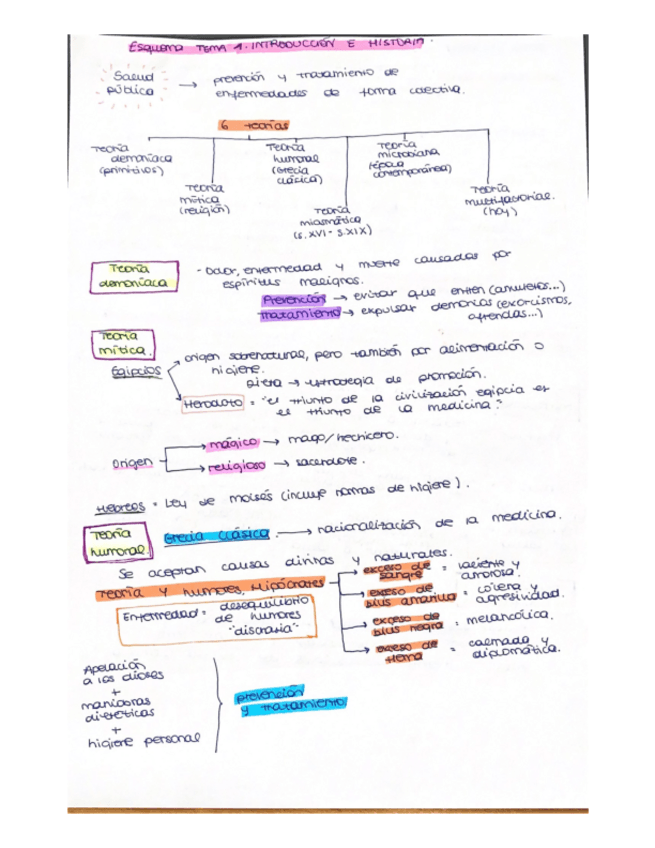 Esquema TEMA 1. INTRODUCCIÓN E HISTORIA.
Salud
pública
→ prevención y tratamiento de
enfermedades de forma colectiva.
6 teorías
Teoría
demoníaca
(primitivos)
Teoría
mítica
(religión)
Teoría
humoral
(Grecia
clásica)
Teoría
miasmática
(s. XVI - s. XIX)
Teoría
microbiana
(época
contemporánea)
Teoría
multifactorial.
(hoy)
Teoría
demoníaca
- Dolor, enfermedad y muerte causadas por
espíritus malignos.
Prevención → evitar que entren (amuletos...)
Tratamiento → expulsar demonios (exorcismos,
ofrendas...)
Teoría
mítica.
Egipcios
origen sobrenatural, pero también por alimentación o
higiene.
dieta → estrategia de promoción.
Herodoto = "el triunfo de la civilización egipcia es
el triunfo de la medicina".
Origen
→ mágico → mago/hechicero.
→ religioso → sacerdote.
Hebreos = Ley de Moisés (incluye normas de higiene).
Teoría
humoral.
Grecia Clásica. → racionalización de la medicina.
Se aceptan causas divinas y naturales.
Teoría y humores, Hipócrates
Enfermedad = desequilibrio
de humores
"discrasia"
exceso de
sangre = valiente y
amorosa.
exceso de
bilis amarilla = cólera y
agresividad.
exceso de
bilis negra = melancólica.
exceso de
flema = calmada y
diplomática.
Apelación
a los dioses
+
maniobras
dietéticas
+
higiene personal
prevención
y tratamiento